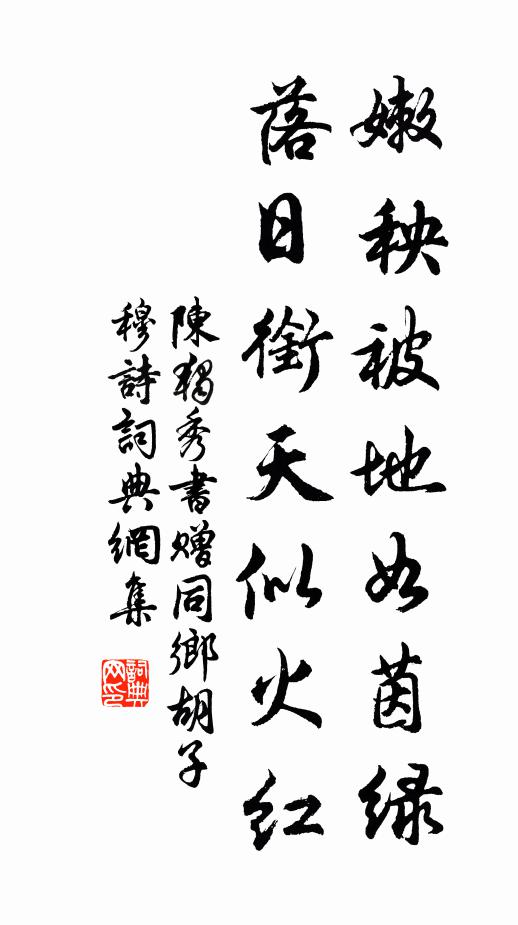 嫩秧被地如茵绿
落日銜天似火红
陳獨秀書贈同鄉胡子
穆詩詞典網集
詞典网印